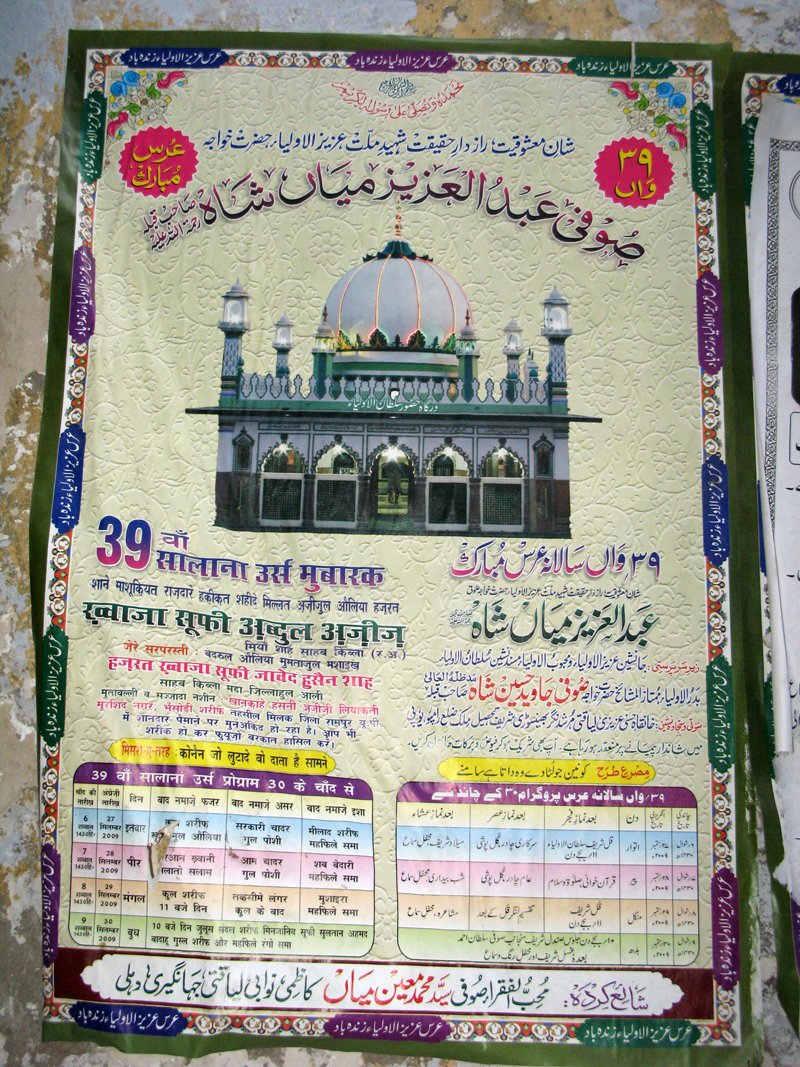 عرس عزیز الاولیاء زندہ باد
عرس عزیز الاولیاء زندہ باد
عرس عزیز الاولیاء زندہ باد
نحمدہ و نصلی علیٰ رسولہ الکریم
شانِ معشوقیت، رازدارِ حقیقت شہیدِ ملّت عزیز الاولیاء حضرت خواجہ
۳۹ واں
عُرس مُبارک
صُوفی عبدُالعزیز میاں شاہ صاحب قبلہ رحمۃ اللہ علیہ
درگاہ حضور سلطان الاولیاء
39 वाँ
सालाना उर्स मुबारक
शाने माशूकियत राज़दारे हक़ीकत शहीद मिल्लत अज़ीजुल औलिया हज़रत
ख़्वाजा सूफ़ी अब्दुल अज़ीज़
मियाँ शाह साहब क़िब्ला (र.अ.)
जेरे सरपरस्ती: बदरूल औलिया मुमताजुल मशाइख़
हज़रत ख़्वाजा सूफी जावेद हुसैन शाह
साहब क़िब्ला मद्दा-जिल्लाहुल आली
मुतावल्ली व सज्जादा नशीन : ख़ानकाहे हसनी अज़ीज़ी लियाकती
मुरशिद नगर, भैंसोड़ी शरीफ तहसील मिलक जिला रामपुर यू.पी.
में शानदार पैमाने पर मुनअकिद हो रहा है। आप भी
शरीक हो कर फुयूज़ो बरकात हासिल करें।
मिसरा-ए-तरह : कोनेन जो लुटादे वो दाता है सामने
39 वाँ सालाना उर्स प्रोग्राम 30 के चाँद से
चाँद की तारीख़ अंग्रेजी तारीख़ दिन बाद नमाजे फजर बाद नमाजे असर बाद नमाजे इशा
6 शव्वाल 1430हि॰ 27 सितम्बर 2009 इतवार कुल औलिया सरकारी चादर गुल पोशी मीलाद शरीफ महफिले समा
7 शव्वाल 1430हि॰ 28 सितम्बर 2009 पीर ख़्वानी सलाम आम चादर गुल पोशी शब बेदारी महफिले समा
8 शव्वाल 1430हि॰ 29 सितम्बर 2009 मंगल कुल शरीफ 11 बजे दिन तकसीमे लंगर कुल के बाद मुशायरा महफिले समा
9 शव्वाल 1430हि॰ 30 सितम्बर 2009 बुध 10 बजे दिन जुलूस संदल शरीफ मिनजानिब सूफी सुलतान अहमद
बादाहु गुस्ल शरीफ और महफिले रंगो समा
۳۹ واں سالانہ عرس مُبارک
شان معشوقیت رازدار حقیقت شہید ملت عزیز الاولیاء حضرت خواجہ صوفی
عبدالعزیز میاں شاہ
زیر سرپرستی: جانشین عزیز الاولیاء و محبوب الاولیاء مسند نشین سلطان الاولیاء
بدرالاولیاء ممتاز المشائخ حضرت خواجہ صوفی جاوید حسین شاہ صاحب قبلہ مدظلہُ العالی
میں شاندار پیمانے پر منعقد ہو رہا ہے۔ آپ بھی شریک ہو کر فیوض و برکات حاصل کریں۔
مصرع طرح: کونین جو لٹا دے وہ داتا ہے سامنے
۳۹/واں سالانہ عرس پروگرام ۳۰ کے چاند سے
چاند کی تاریخ انگریزی تاریخ دن بعد نماز فجر بعد نماز عصر بعد نماز عشاء
اتوار قل شریف سلطان الاولیاء ۱۱ بجے دن سرکاری چادر گل پوشی میلاد شریف محفل سماع
پیر قرآن خوانی صلوٰۃ و سلام عام چادر گل پوشی شب بیداری محفل سماع
منگل قل شریف ۱۱ بجے دن تقسیم لنگر قل کے بعد مشاعرہ محفل سماع
بدھ ۱۰ بجے دن جلوس صندل شریف منجانب صوفی سلطان احمد
بعدہ غسل شریف اور محفل رنگ و سماع
شائع کردہ: محبُّ الفقراء صوفی سیّد محمد معین میاں کاظمی نوابی لیاقتی جہانگیری دہلی
عرس عزیز الاولیاء زندہ باد
عرس عزیز الاولیاء زندہ باد
عرس عزیز الاولیاء زندہ باد